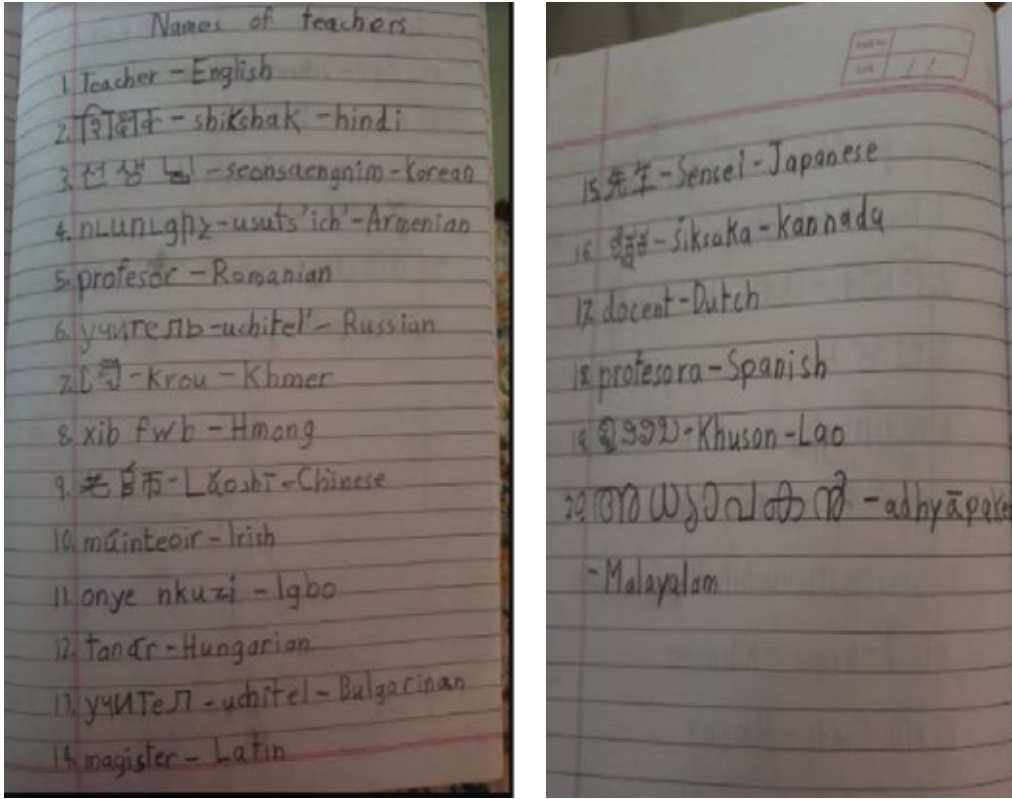 Names of teachers
1. Teacher - English
2. शिक्षक - shikshak - hindi
3. 선 생 님 - seonsaengnim - Korean
4. ուսուցիչ - usuts'ich' - Armenian
5. profesor - Romanian
6. учитель - uchitel' - Russian
7. - Krou - Khmer
8. xib fwb - Hmong
9. - Lǎoshī - Chinese
10. múinteoir - Irish
11. onye nkuzi - Igbo
12. tanár - Hungarian
13. учител - uchitel - Bulgarinan
14. magister - Latin
15. 先生 - Sensei - Japanese
16. - Śikṣaka - Kannada
17. docent - Dutch
18. profesora - Spanish
19. - Khuson - Lao
20. അധ്യാപകൻ - adhyāpake
- Malayalam